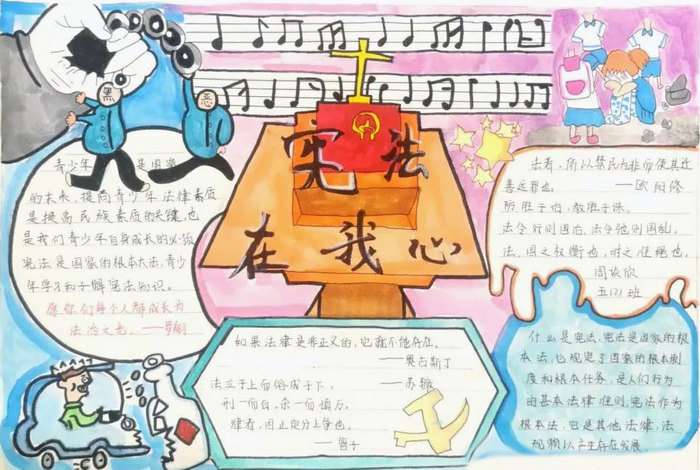 宪法
在我心
黑
恶
青少年 是国家
的未来,提高青少年法律素质
是提高民族素质的关键,也
是我们青少年自身成长的必须
宪法是国家的根本大法,青少
年学习和了解宪法知识。
愿你们每个人都成长为
法治之光。——罗翔
法者,所以禁民为非而使其迁
善远罪也。——欧阳修
教胜于惩。
法令行则国治,法令弛则国乱。
法,国之权衡也,时之准绳也。
五(2)班
如果法律是非正义的,它就不能存在。
——奥古斯丁
法立于上而俗成于下。
——苏辙
刑一而百,杀一而慎万。
律者,
——管子
什么是宪法,宪法是国家的根
本法,也规定了国家的根本制
度和根本任务,是人们行为
的基本法律准则,宪法作为
根本法,它是其他法律、法
规赖以产生存在发展。